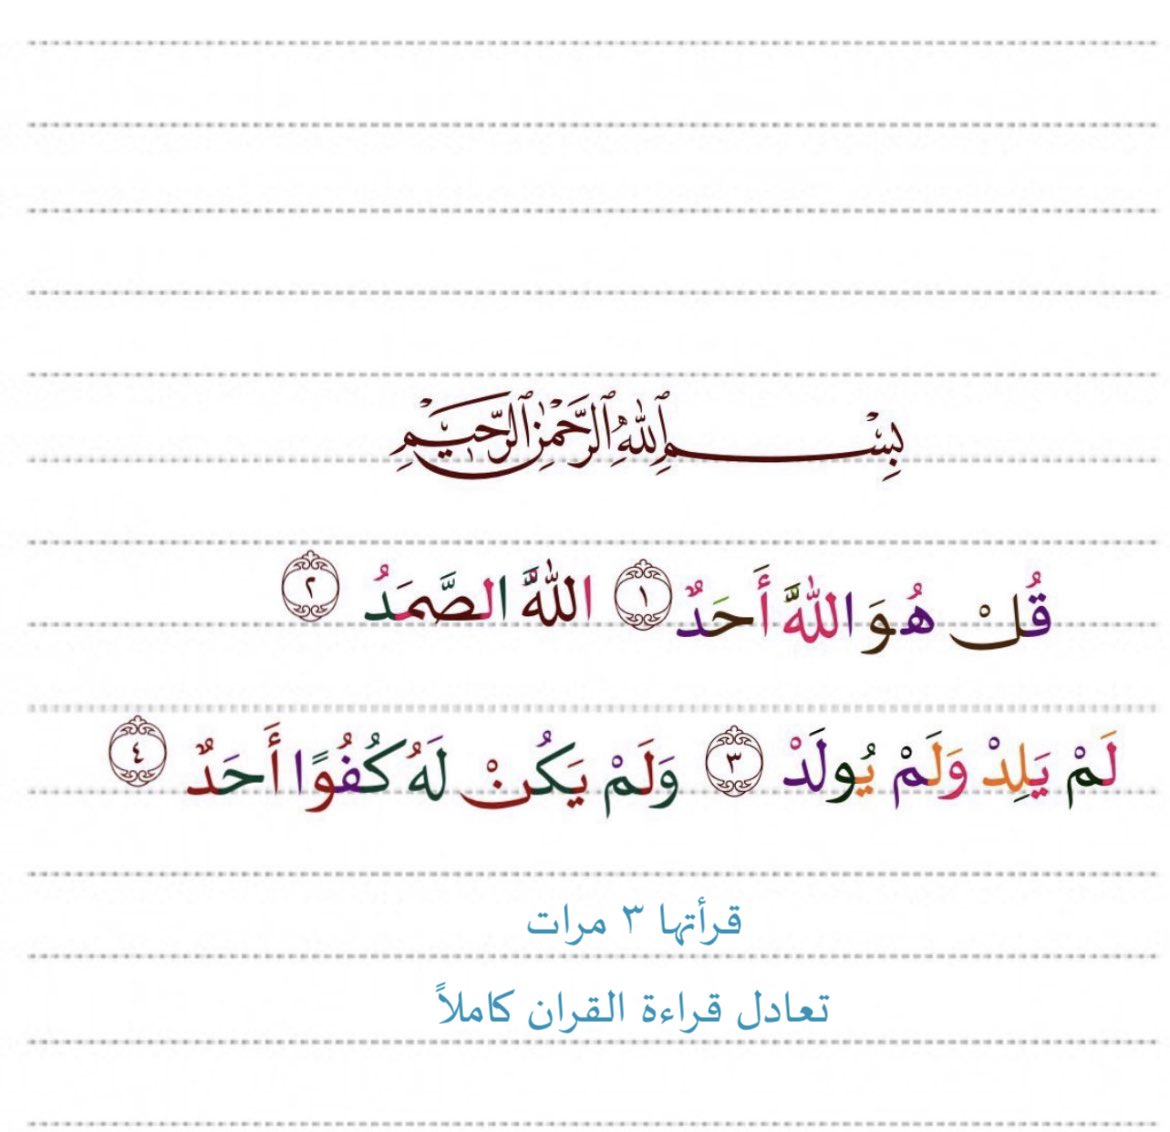 بِسْمِ ٱللَّهِ ٱلرَّحْمَٰنِ ٱلرَّحِيمِ
قُلْ هُوَ اللَّهُ أَحَدٌ ١ اللَّهُ الصَّمَدُ ٢
لَمْ يَلِدْ وَلَمْ يُولَدْ ٣ وَلَمْ يَكُنْ لَهُ كُفُوًا أَحَدٌ ٤
قرأتها ٣ مرات
تعادل قراءة القران كاملاً